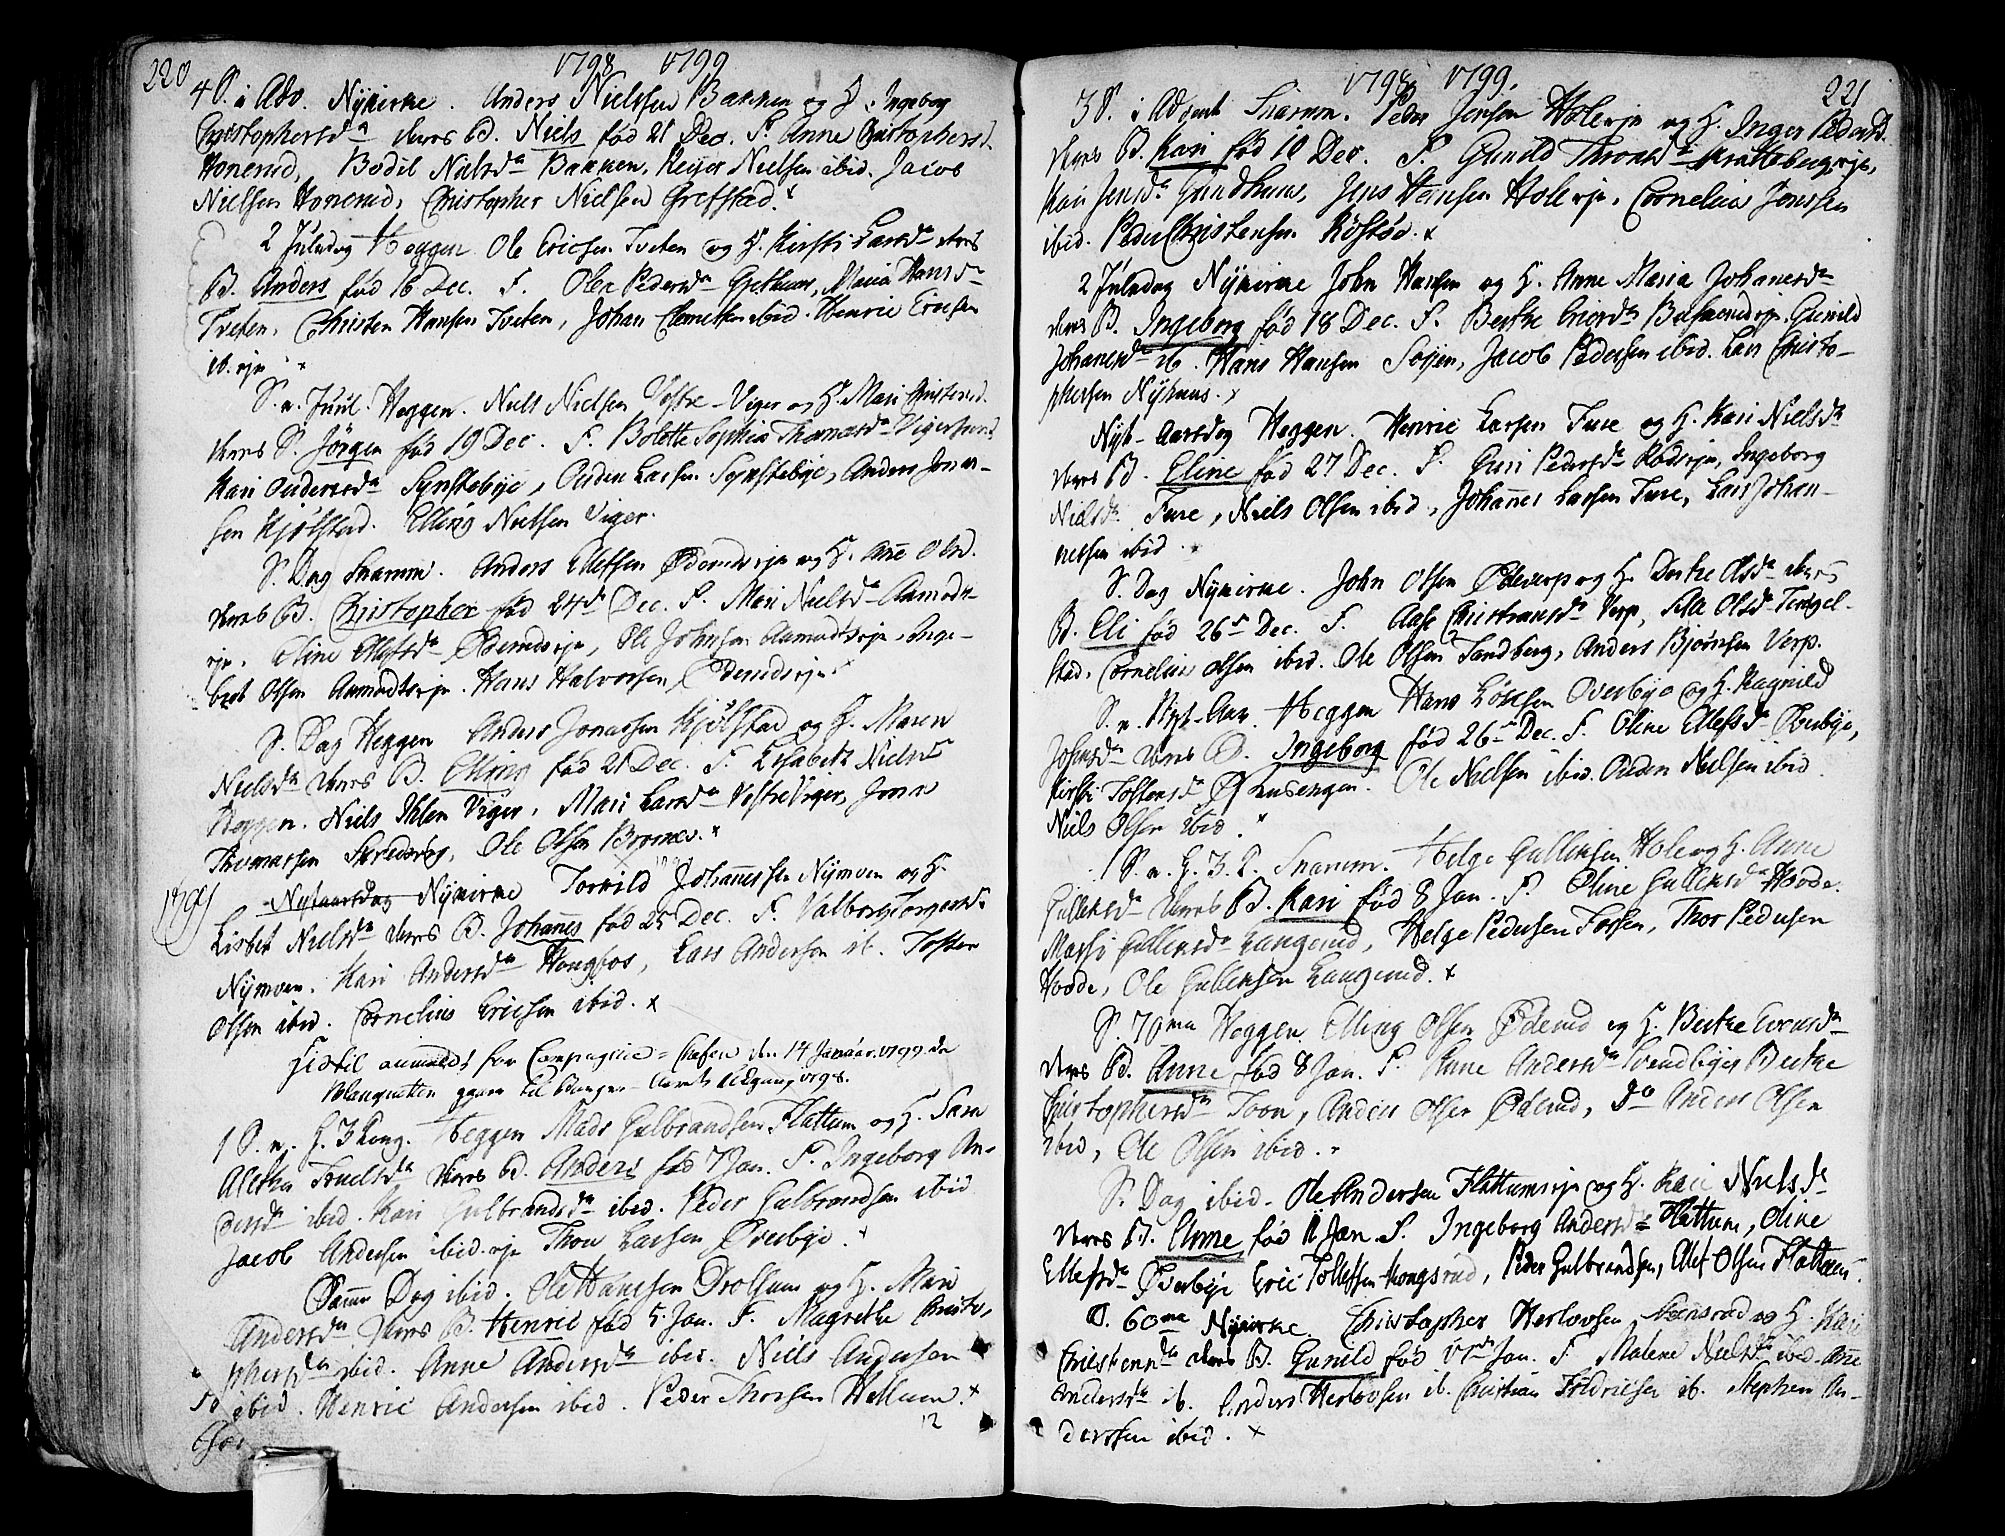 220
1798 1799
4 S. i Adv. Nykirke. Anders Nielssen Bakken og H: Ingebog
Christophersd. deres B. Niels fød 21 Dec. F. Anne Christophersd.
Honerud, Bodil Nielsd. Bakken, Reyer Nielsen ibid. Jacob
Nielsen Honerud, Christopher Nielsen Grefstad. x
2 Juledag Heggen Ole Ericsen Tveten og H. Kirsti Larsd. deres
B. Anders fød 16 Dec. F. Olea Pedersd. Grethum, Maria Hansd.
Tveten, Christen Hansen Tveten, Johan Clemetsen ibid. Henric Ericsen
ib. eje x
S. n. Juul. Heggen. Niels Nielsen Vestre-Viger og H. Mari Christensd.
deres S. Jörgen fød 19 Dec. F. Bolette Sophia Thomasd. Vigersund
Kari Oudensd. Synstebye, Ouden Larsen Synstebye, Anders Jonas-
sen Kjölstad. Elling Nielsen Viger.
S. Dag Snarum. Anders Ellefsen Ødemdseje og H. Ane Olsd.
deres B. Christopher fød 24d. Dec. F. Mari Nielsd. Aamodts
eje. Eline Ellefsd. Ødemdseje, Ole Johnsen Aamodtseje, Inge-
bret Olsen Aamodtseje. Hans Halvorsen Ødemdseje.
S. Dag Heggen Anders Jonassen Kjölstad og H. Maren
Nielsd. deres B. Elling fød 21 Dec. F. Elisabeth Nielsd.
Heggen. Niels Ihlen Viger, Mari Larsd. Vestre Viger, Jonas
Thomassen Skredsvig, Ole Olsen Bromes. x
1799 Nytaarsdag Nykirke Torkild Johannessen Nymoen og H.
Lisbet Nielsd. deres B. Johannes fød 25 Dec. F. Valborg Torgersd.
Nymoen. Kari Andersd. Hougfos, Lars Andersen ib. Tosten
Olsen ibid. Cornelius Ericsen ibid. x
Hertil anmeldt for Compagnie-Chefen den 14 Januar 1799 da
blanquetten gaaer til Aarets Udgang
1 S. n. H. 3 Kong. Heggen Mads Gulbrandsen Flattum og H. Sara
Aletha Truelsd. deres B. Anders fød 7 Jan. F. Ingeborg An-
dersd. ibid. Kari Gulbrandsd. ibid. Peder Gulbrandsen ibid
Jacob Andersen ibid. eje Thore Larsen Overbye. x
Samme Dag ibid. Ole Hansen Drolsum og H. Mari
Andersd. deres B. Henric fød 5 Jan. F. Magrethe Christo-
phersd. ibid. Anne Andersd. ibid. Niels Andersen
ibid. Henric Andersen ibid. Peder Thorsen Hellum. x
12
221
1798 1799.
3 S. i Advent Snarum. Peder Jensen Holeeje og H. Inger Pedersd.
deres B. Kari fød 10 Dec. F. Gunild Thronsd. eje,
Kari Jensd. Gundhuus, Jens Hansen Holeeje, Cornelius Jonssen
ibid. Peder Christensen Røstøe. x
2 Juledag Nykirke John Hansen og H. Anne Maria Johanesd.
deres B. Ingeborg fød 18 Dec. F. Berthe Ericsd. Buskerudeje. Gunild
Johanesd. ib. Hans Hansen Sojen, Jacob Pedersen ibid. Lars Christo-
phersen Nyhuus. x
Nyt-Aarsdag Heggen. Henric Larsen Ture og H. Kari Nielsd.
deres B. Eline fød 27 Dec. F. Guri Pedersd. Rudseje, Ingeborg
Nielsd. Ture, Niels Olsen ibid, Johannes Larsen Ture, Lars Johan-
nessen ibid. x
S. Dag Nykirke. John Olsen Ødeverp og H. Dorthe Olsd. deres
B. Eli fød 26de Dec. F. Aase Christiansd. Verp, Sille Olsd. Tingel-
stad, Cornelius Olsen ibid. Ole Olsen Sandberg, Anders Bjørnsen Verp.
S. n. Nyt-Aar. Heggen Hans Tostensen Overbye og H. Ragnild
Johnsd. deres B. Ingeborg fød 26de Dec. F. Eline Ellefsd. Overbye,
Kirsti Tostensd. Ole Nielsen ibid. Ouden Nielsen ibid
Niels Olsen ibid. x
1 S. n. H. 3 K. Snarum. Helge Gulliksen Hole og H. Anne
Gulliksd. deres B. Kari fød 8 Jan. F. Eline Gulliksd. Hovde.
Marthe Gulliksd. Langerud, Helge Pedersen Forsen, Thor Pedersen
Hovde, Ole Gulliksen Langerud. x
S. 70ma Heggen Elling Olsen Øderud og H. Berthe Evensd.
deres B. Anne fød 8 Jan. F. Anne Andersd. Svendbye, Berthe
Christophersd. Toen, Anders Olsen Øderud, do Anders Olsen
ibid, Ole Olsen ibid. x
S. Dag ibid. Ole Andersen Flattumseje og H. Kari Nielsd.
deres B. Anne fød 11 Jan. F. Ingeborg Andersd. Flattum, Oline
Ellefsd. Overbye Eric Tollefsen Hougsrud, Peder Gulbrandsen, Ellef Olsen Flattum.
S. 60ma Nykirke. Christopher Herlovsen og H. Kari
Christensd. deres B. Gunild fød 17de Jan. F. Malene Nielsd. ibid. Anne
Andersd. ib. Anders Herlovsen ib. Christian Fridricsen ib. Stephen An-
derssen ibid. x